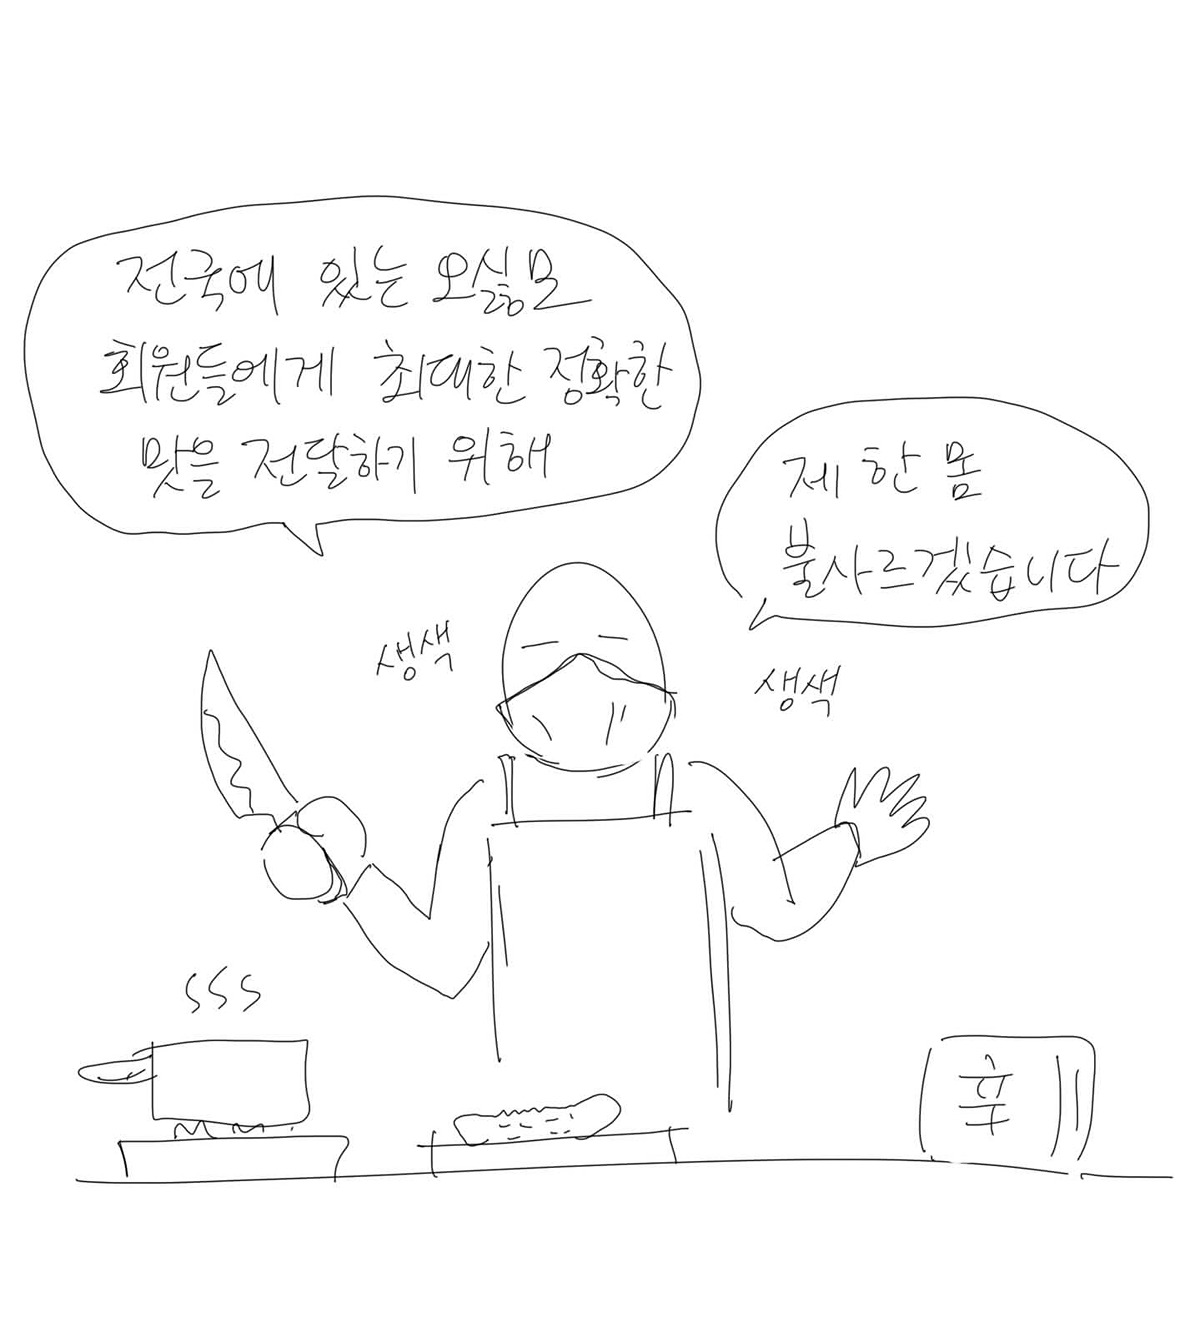 전국에 있는 오싫모
회원들에게 최대한 정확한
맛을 전달하기 위해
제 한 몸
불사르겠습니다
생색
생색
휴